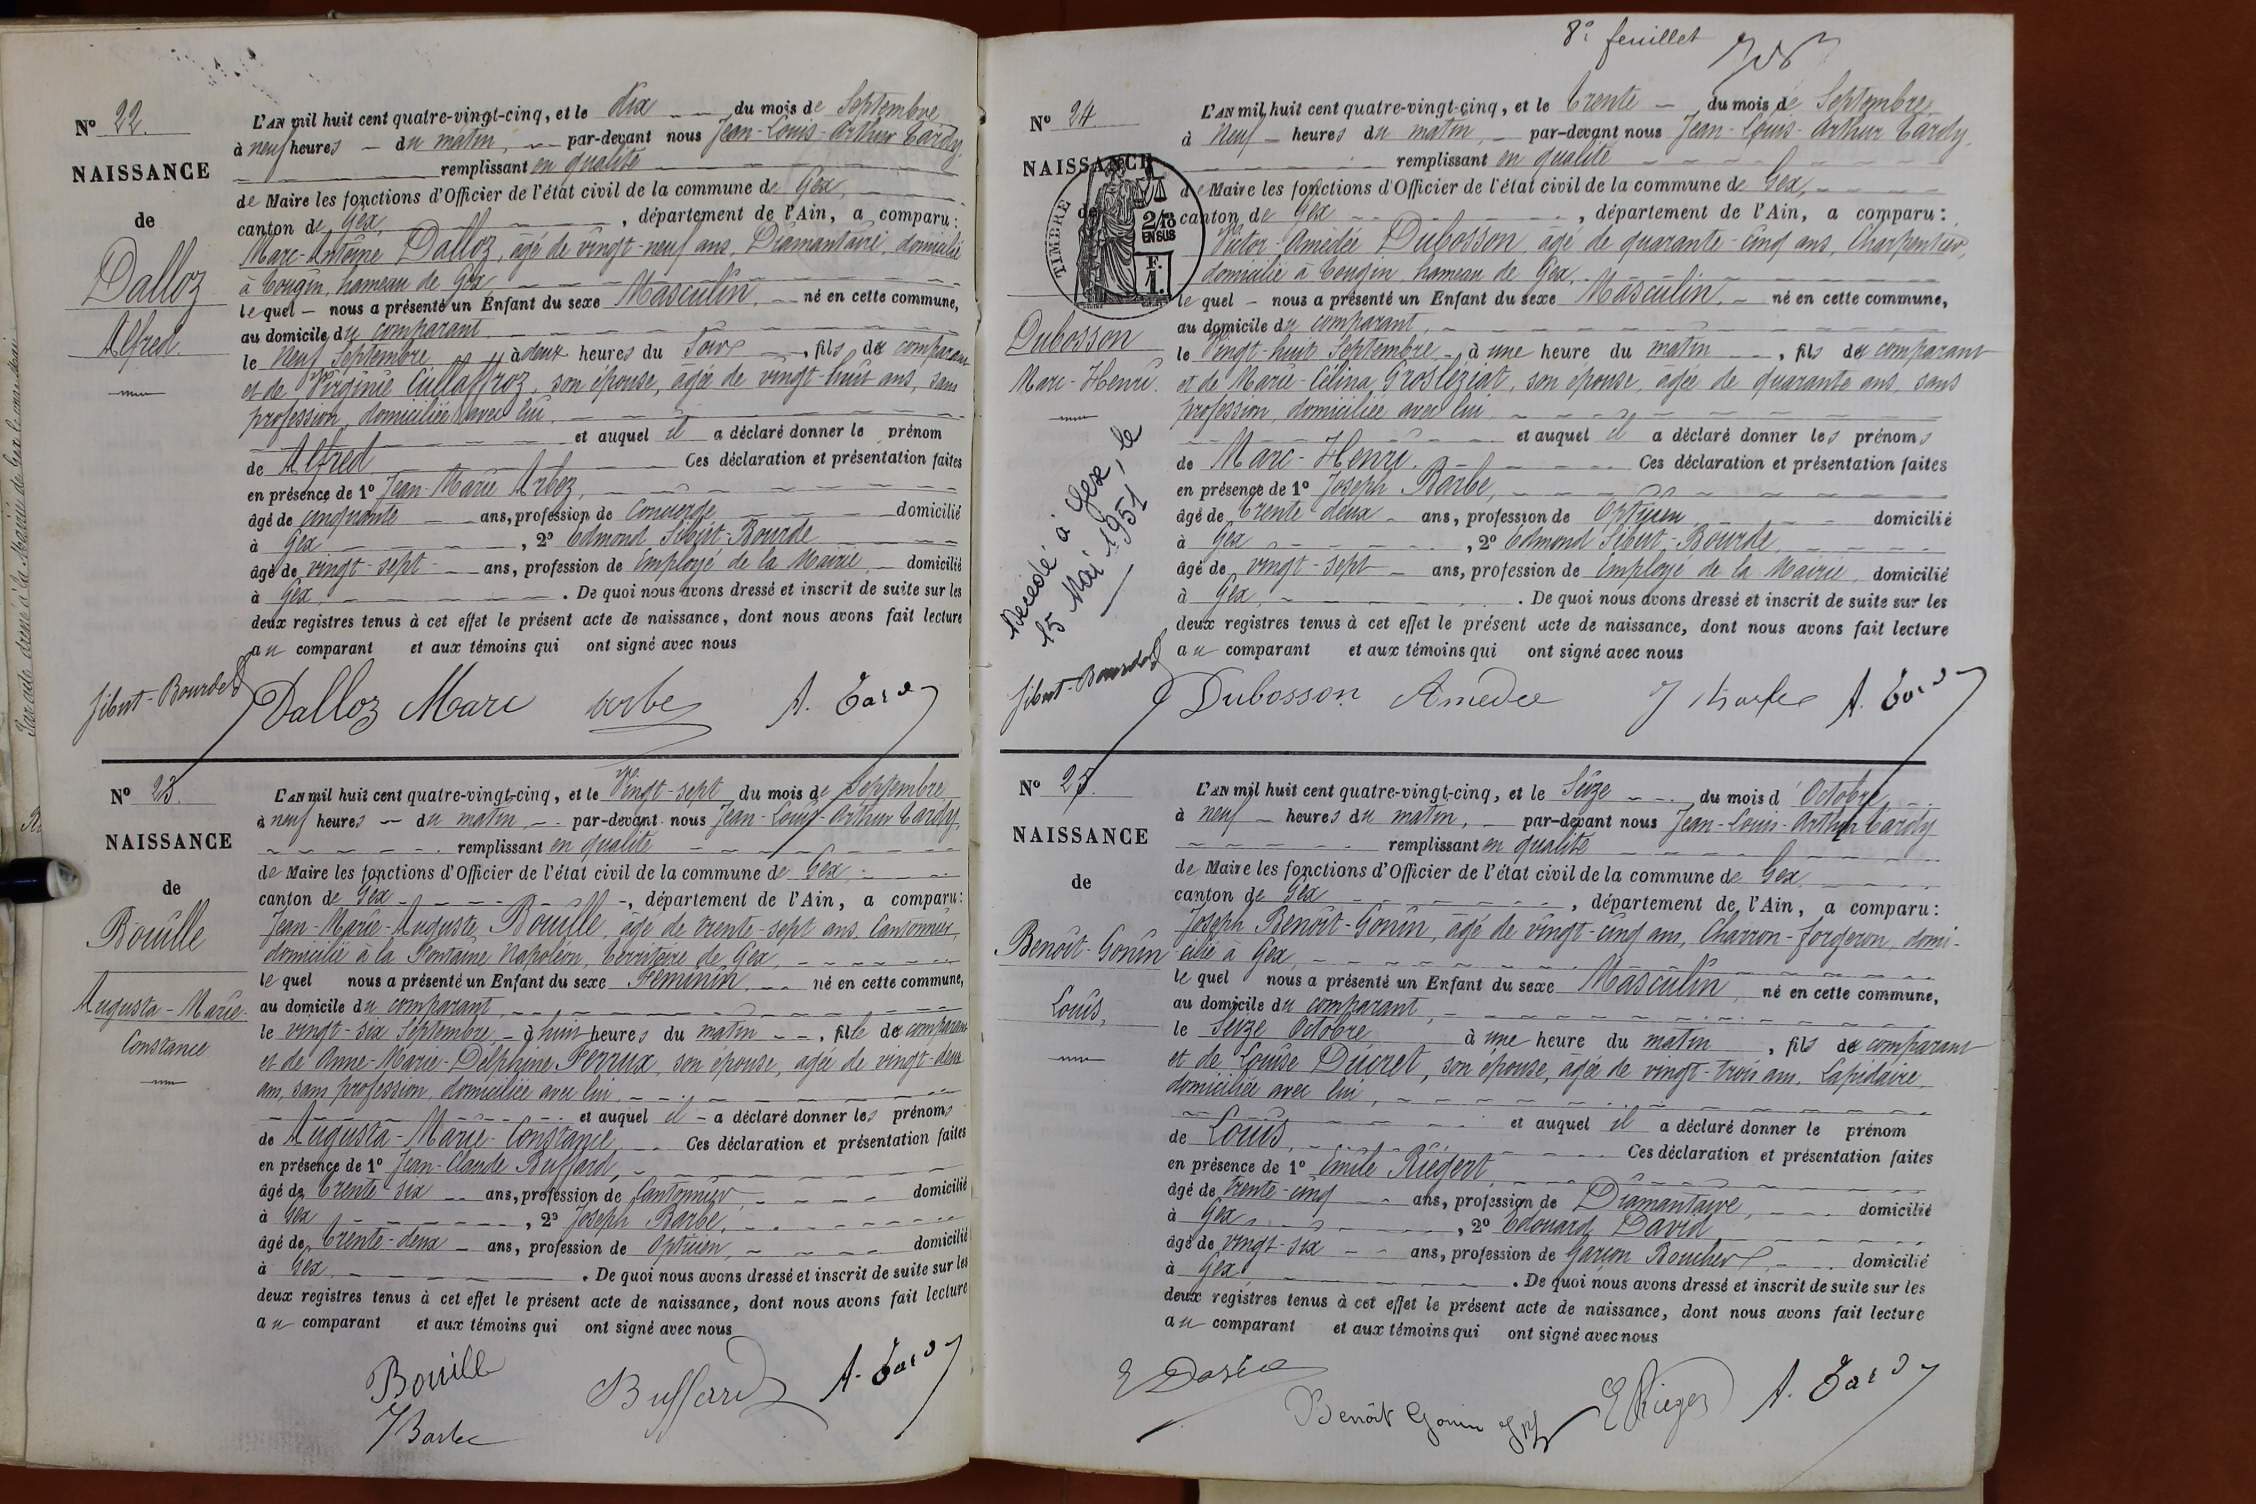 Nº 22.
NAISSANCE
de
Dalloz
Alfred.
L'AN mil huit cent quatre-vingt-cinq, et le dix du mois de Septembre
à neuf heures du matin, par-devant nous Jean-Louis-Arthur Tardy,
remplissant en qualité
de Maire les fonctions d'Officier de l'état civil de la commune de Gex,
canton de Gex, département de l'Ain, a comparu:
Marc-Antoine Dalloz, âgé de vingt-neuf ans, Diamantaire, domicilié
à Tougin, hameau de Gex,
lequel nous a présenté un Enfant du sexe Masculin, né en cette commune,
au domicile du comparant
le neuf Septembre à deux heures du Soir, fils du comparant
et de Virginie Cullaffroz, son épouse, âgée de vingt-huit ans, sans
profession, domiciliée avec lui,
et auquel il a déclaré donner le prénom
de Alfred Ces déclaration et présentation faites
en présence de 1º Jean-Marie Arbez,
âgé de cinquante ans, profession de Concierge domicilié
à Gex, 2º Edmond Sibut-Bourde
âgé de vingt-sept ans, profession de Employé de la Mairie, domicilié
à Gex. De quoi nous avons dressé et inscrit de suite sur les
deux registres tenus à cet effet le présent acte de naissance, dont nous avons fait lecture
au comparant et aux témoins qui ont signé avec nous
Sibut-Bourde Dalloz Marc Arbez A. Tardy
Nº 23.
NAISSANCE
de
Bouille
Augusta-Marie-
Constance
L'AN mil huit cent quatre-vingt-cinq, et le Vingt-sept du mois de Septembre
à neuf heures du matin, par-devant nous Jean-Louis-Arthur Tardy,
remplissant en qualité
de Maire les fonctions d'Officier de l'état civil de la commune de Gex,
canton de Gex, département de l'Ain, a comparu:
Jean-Marie-Auguste Bouille, âgé de trente-sept ans, Cantonnier,
domicilié à la Fontaine Napoléon, territoire de Gex,
lequel nous a présenté un Enfant du sexe Féminin, né en cette commune,
au domicile du comparant,
le vingt-six Septembre à huit heures du matin, fille du comparant
et de Anne-Marie-Delphine Ferrux, son épouse, âgée de vingt-deux
ans, sans profession, domiciliée avec lui,
et auquel il a déclaré donner les prénoms
de Augusta-Marie-Constance, Ces déclaration et présentation faites
en présence de 1º Jean-Claude Buffard,
âgé de trente-six ans, profession de Cantonnier, domicilié
à Gex, 2º Joseph Barbe,
âgé de trente-deux ans, profession de Opticien, domicilié
à Gex. De quoi nous avons dressé et inscrit de suite sur les
deux registres tenus à cet effet le présent acte de naissance, dont nous avons fait lecture
au comparant et aux témoins qui ont signé avec nous
Bouille Buffard A. Tardy
J Barbe
8e feuillet
Nº 24
NAISSANCE
de
TIMBRE
2/10
EN SUS
F.
1.
Dubosson
Marc-Henri.
Décédé à Gex, le
15 Mai 1951
L'AN mil huit cent quatre-vingt-cinq, et le trente du mois de Septembre
à neuf heures du matin, par-devant nous Jean-Louis-Arthur Tardy,
remplissant en qualité
de Maire les fonctions d'Officier de l'état civil de la commune de Gex,
canton de Gex, département de l'Ain, a comparu:
Victor-Amédée Dubosson, âgé de quarante-cinq ans, Charpentier,
domicilié à Tougin, hameau de Gex,
lequel nous a présenté un Enfant du sexe Masculin, né en cette commune,
au domicile du comparant,
le Vingt-huit Septembre, à une heure du matin, fils du comparant
et de Marie-Célina Grosleziat, son épouse, âgée de quarante ans, sans
profession, domiciliée avec lui
et auquel il a déclaré donner les prénoms
de Marc-Henri. Ces déclaration et présentation faites
en présence de 1º Joseph Barbe,
âgé de trente deux ans, profession de Opticien domicilié
à Gex, 2º Edmond Sibut-Bourde,
âgé de vingt-sept ans, profession de Employé de la Mairie, domicilié
à Gex. De quoi nous avons dressé et inscrit de suite sur les
deux registres tenus à cet effet le présent acte de naissance, dont nous avons fait lecture
au comparant et aux témoins qui ont signé avec nous
Sibut-Bourde Dubosson Amedee J Barbe A. Tardy
Nº 25.
NAISSANCE
de
Benoît-Gonin
Louis,
L'AN mil huit cent quatre-vingt-cinq, et le Seize du mois d'Octobre
à neuf heures du matin, par-devant nous Jean-Louis-Arthur Tardy
remplissant en qualité
de Maire les fonctions d'Officier de l'état civil de la commune de Gex
canton de Gex, département de l'Ain, a comparu:
Joseph Benoît-Gonin, âgé de vingt-cinq ans, Charron-forgeron, domi-
cilié à Gex,
lequel nous a présenté un Enfant du sexe Masculin, né en cette commune,
au domicile du comparant,
le Seize Octobre à une heure du matin, fils du comparant
et de Louise Ducret, son épouse, âgée de vingt-trois ans, Lapidaire,
domiciliée avec lui,
et auquel il a déclaré donner le prénom
de Louis, Ces déclaration et présentation faites
en présence de 1º Emile Riegert,
âgé de trente-cinq ans, profession de Diamantaire, domicilié
à Gex, 2º Edouard David
âgé de vingt-six ans, profession de Garçon Boucher, domicilié
à Gex. De quoi nous avons dressé et inscrit de suite sur les
deux registres tenus à cet effet le présent acte de naissance, dont nous avons fait lecture
au comparant et aux témoins qui ont signé avec nous
E David
Benoît Gonin Jph E Rieger A. Tardy